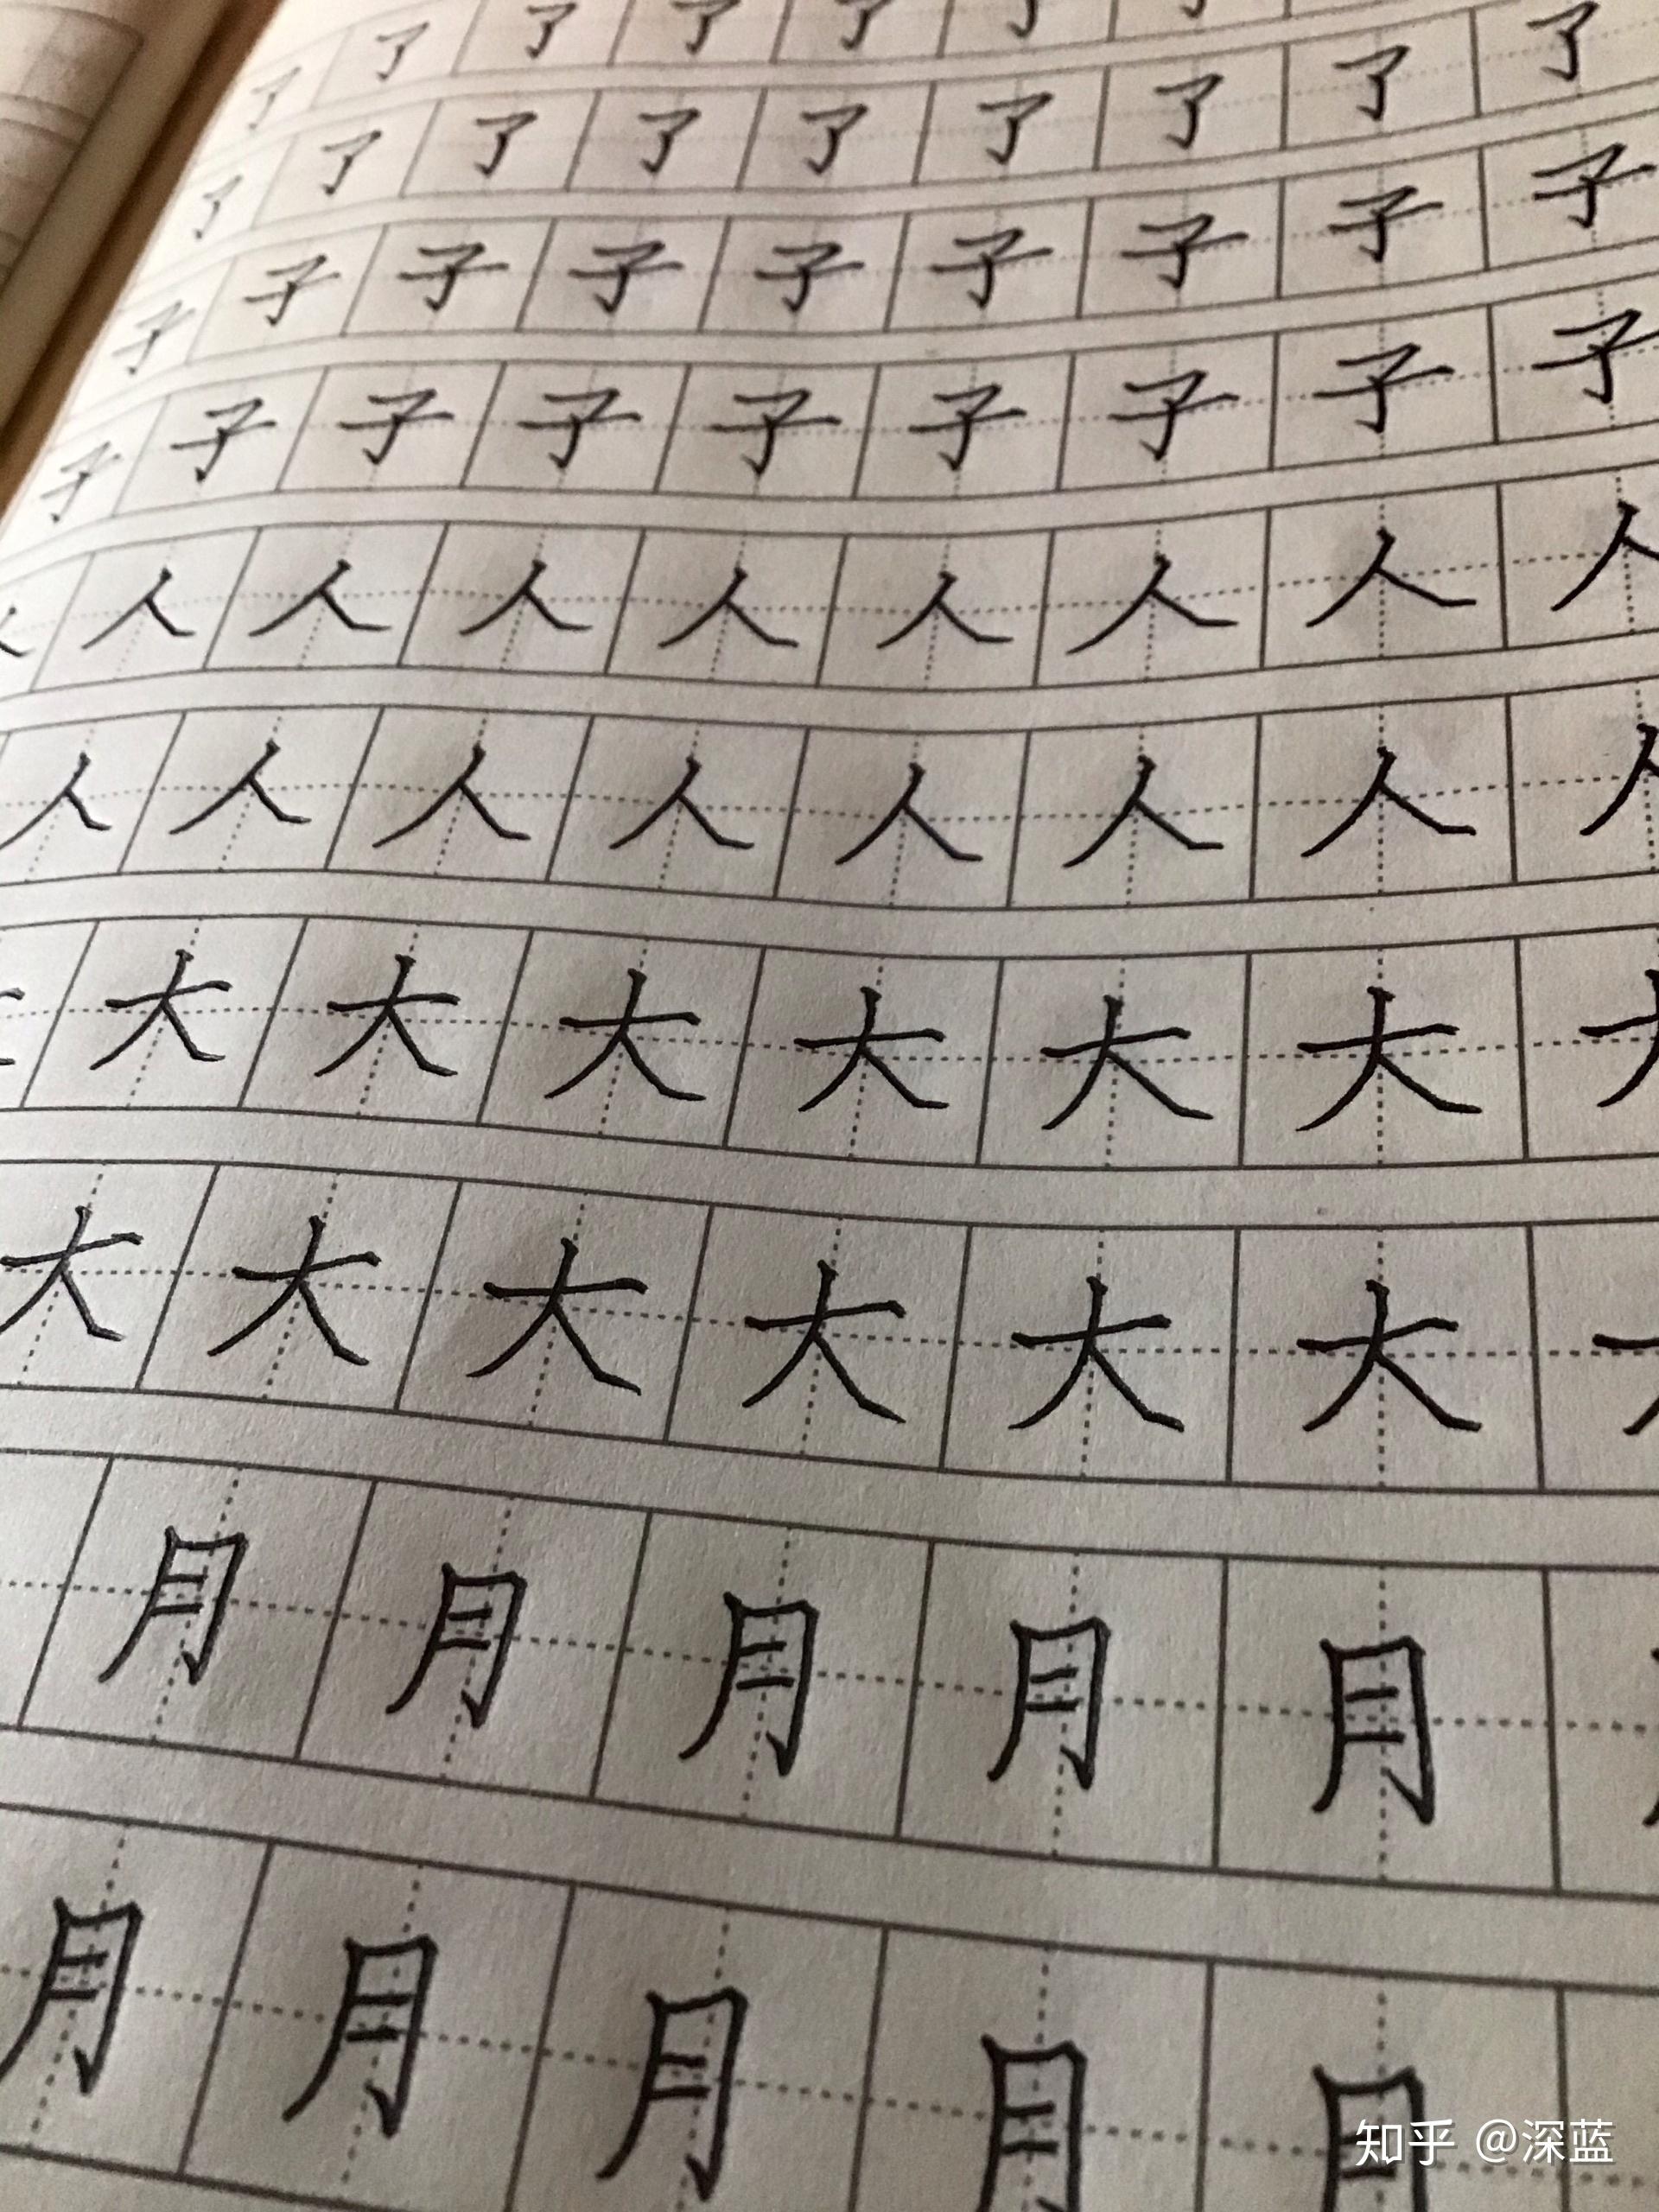 了了了了了了
了了了了了了了了了
子子子子子子子子子
子子子子子子子子子
人人人人人人人人
人人人人人人人人
大大大大大大
大大大大大大
月月月月月
月月月月月
知乎 @深蓝